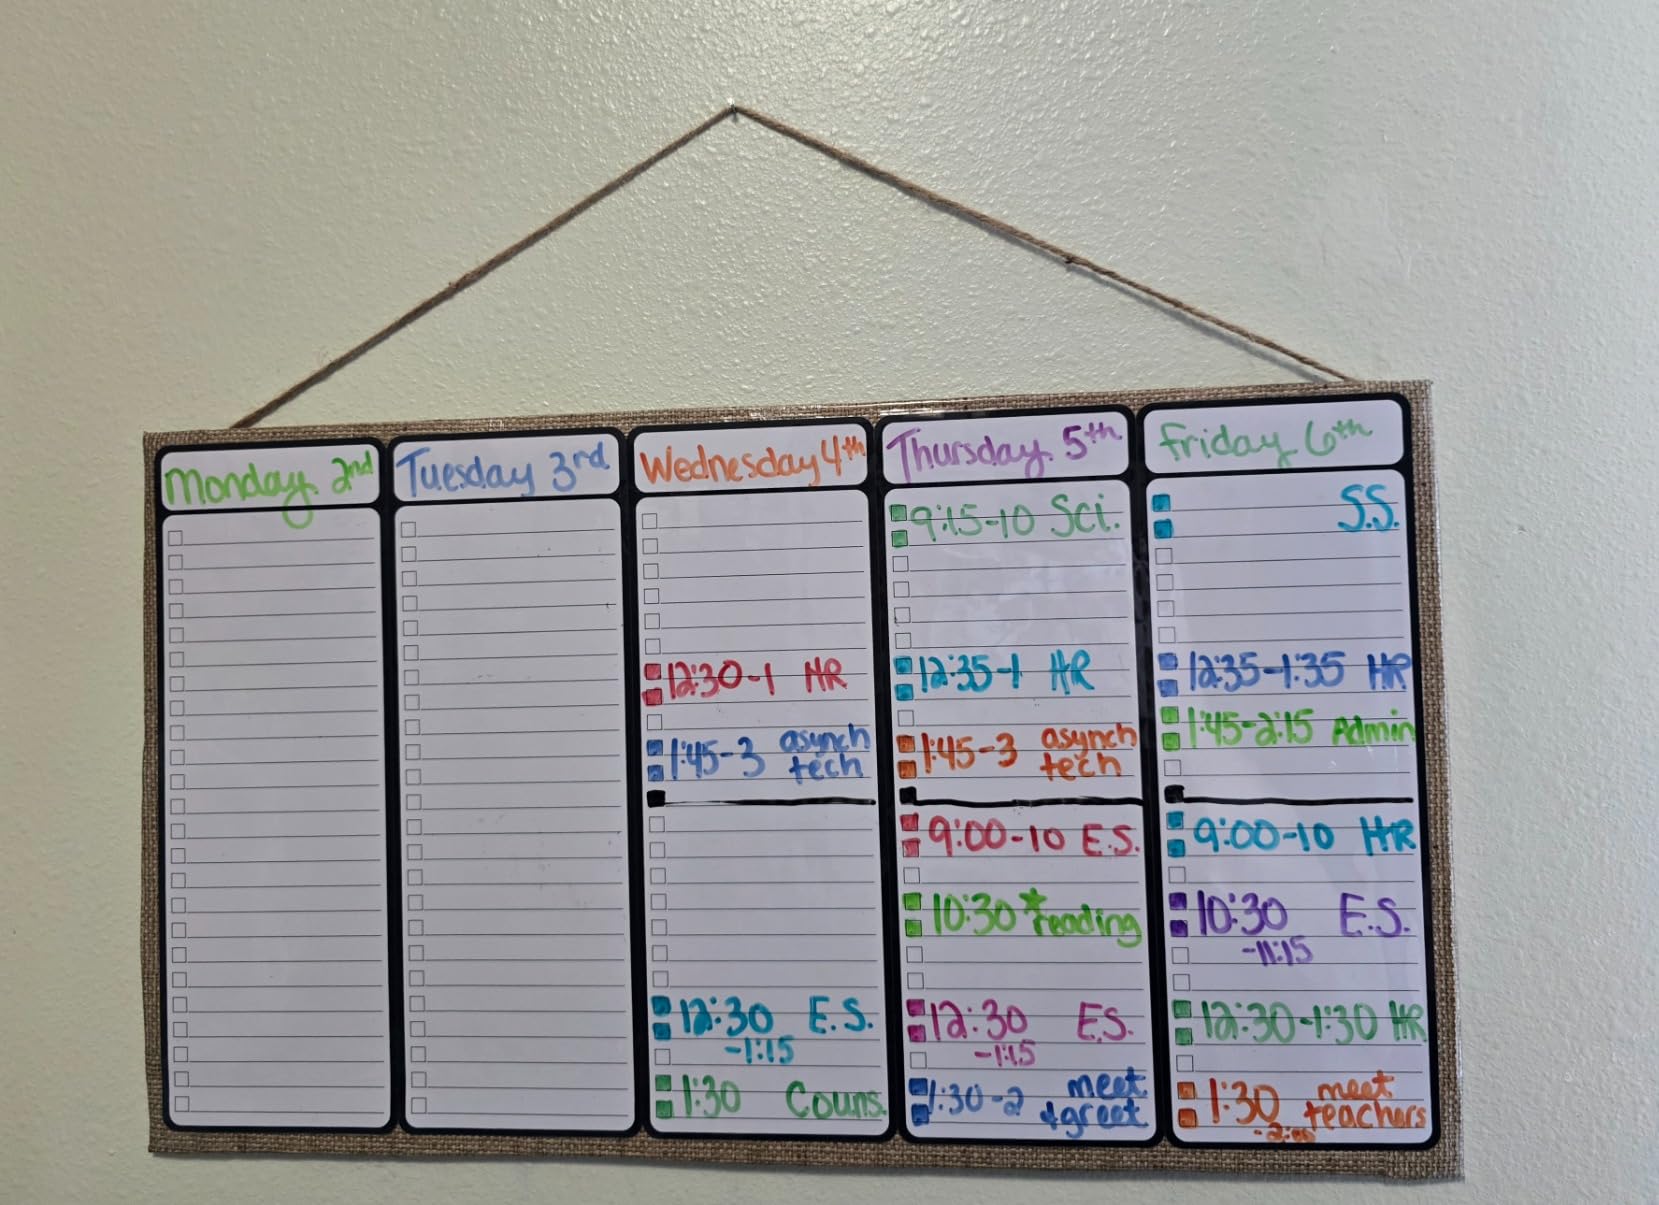 Monday 2nd
Tuesday 3rd
Wednesday 4th
12:30-1 HR
1:45-3 asynch
tech
12:30 E.S.
-1:15
1:30 Couns.
Thursday 5th
9:15-10 Sci.
12:35-1 HR
1:45-3 asynch
tech
9:00-10 E.S.
10:30 *reading
12:30 E.S.
-1:15
1:30-2 meet
+greet
Friday 6th
S.S.
12:35-1:35 HR
1:45-2:15 Admin
9:00-10 HR
10:30 E.S.
-11:15
12:30-1:30 HR
1:30 meet
-2:00 teachers